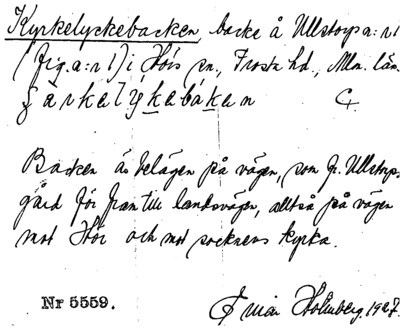 Kyrkelyckebacken, backe å Ullstorps a: r 1
(fig. a: r 1) i Hörs sn, Frosta hd., Mlm. län.
Backen är belägen på vägen, som fr. Ullstorps
gård för fram till landsvägen, alltså på vägen
mot Hör och mot socknens kyrka.
Nr 5559.
Holmberg. 1927.